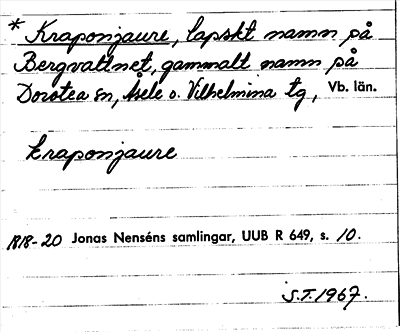 * Kraponjaure, lapskt namn på
Bergvattnet, gammalt namn på
Dorotea sn, Åsele o. Vilhelmina tg, Vb. län.
kraponjaure
1818-20 Jonas Nenséns samlingar, UUB R 649, s. 10.
S.T. 1967.